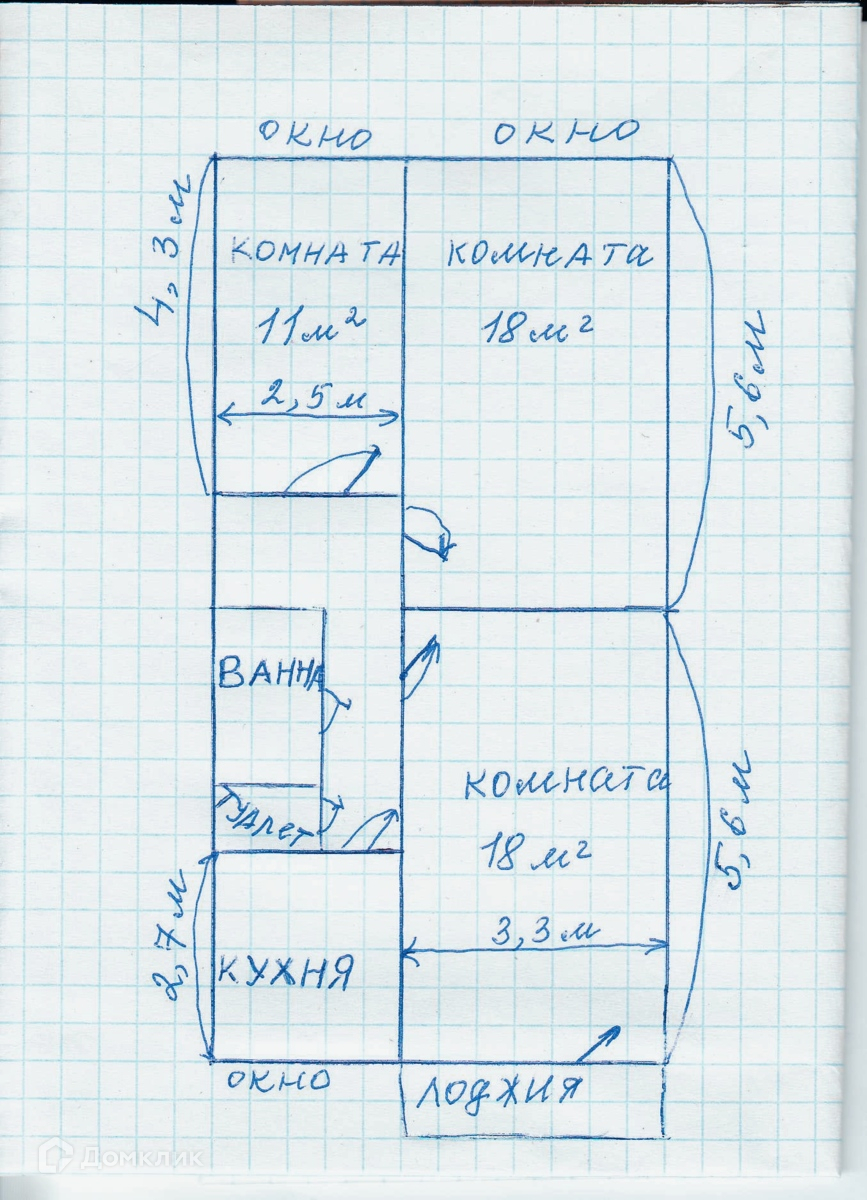 ОКНО ОКНО
4,3м
КОМНАТА
11м²
2,5м
КОМНАТА
18м²
5,6м
ВАННА
ТУАЛЕТ
КОМНАТА
18м²
3,3м
5,6м
2,7м
КУХНЯ
ОКНО
ЛОДЖИЯ
Домклик